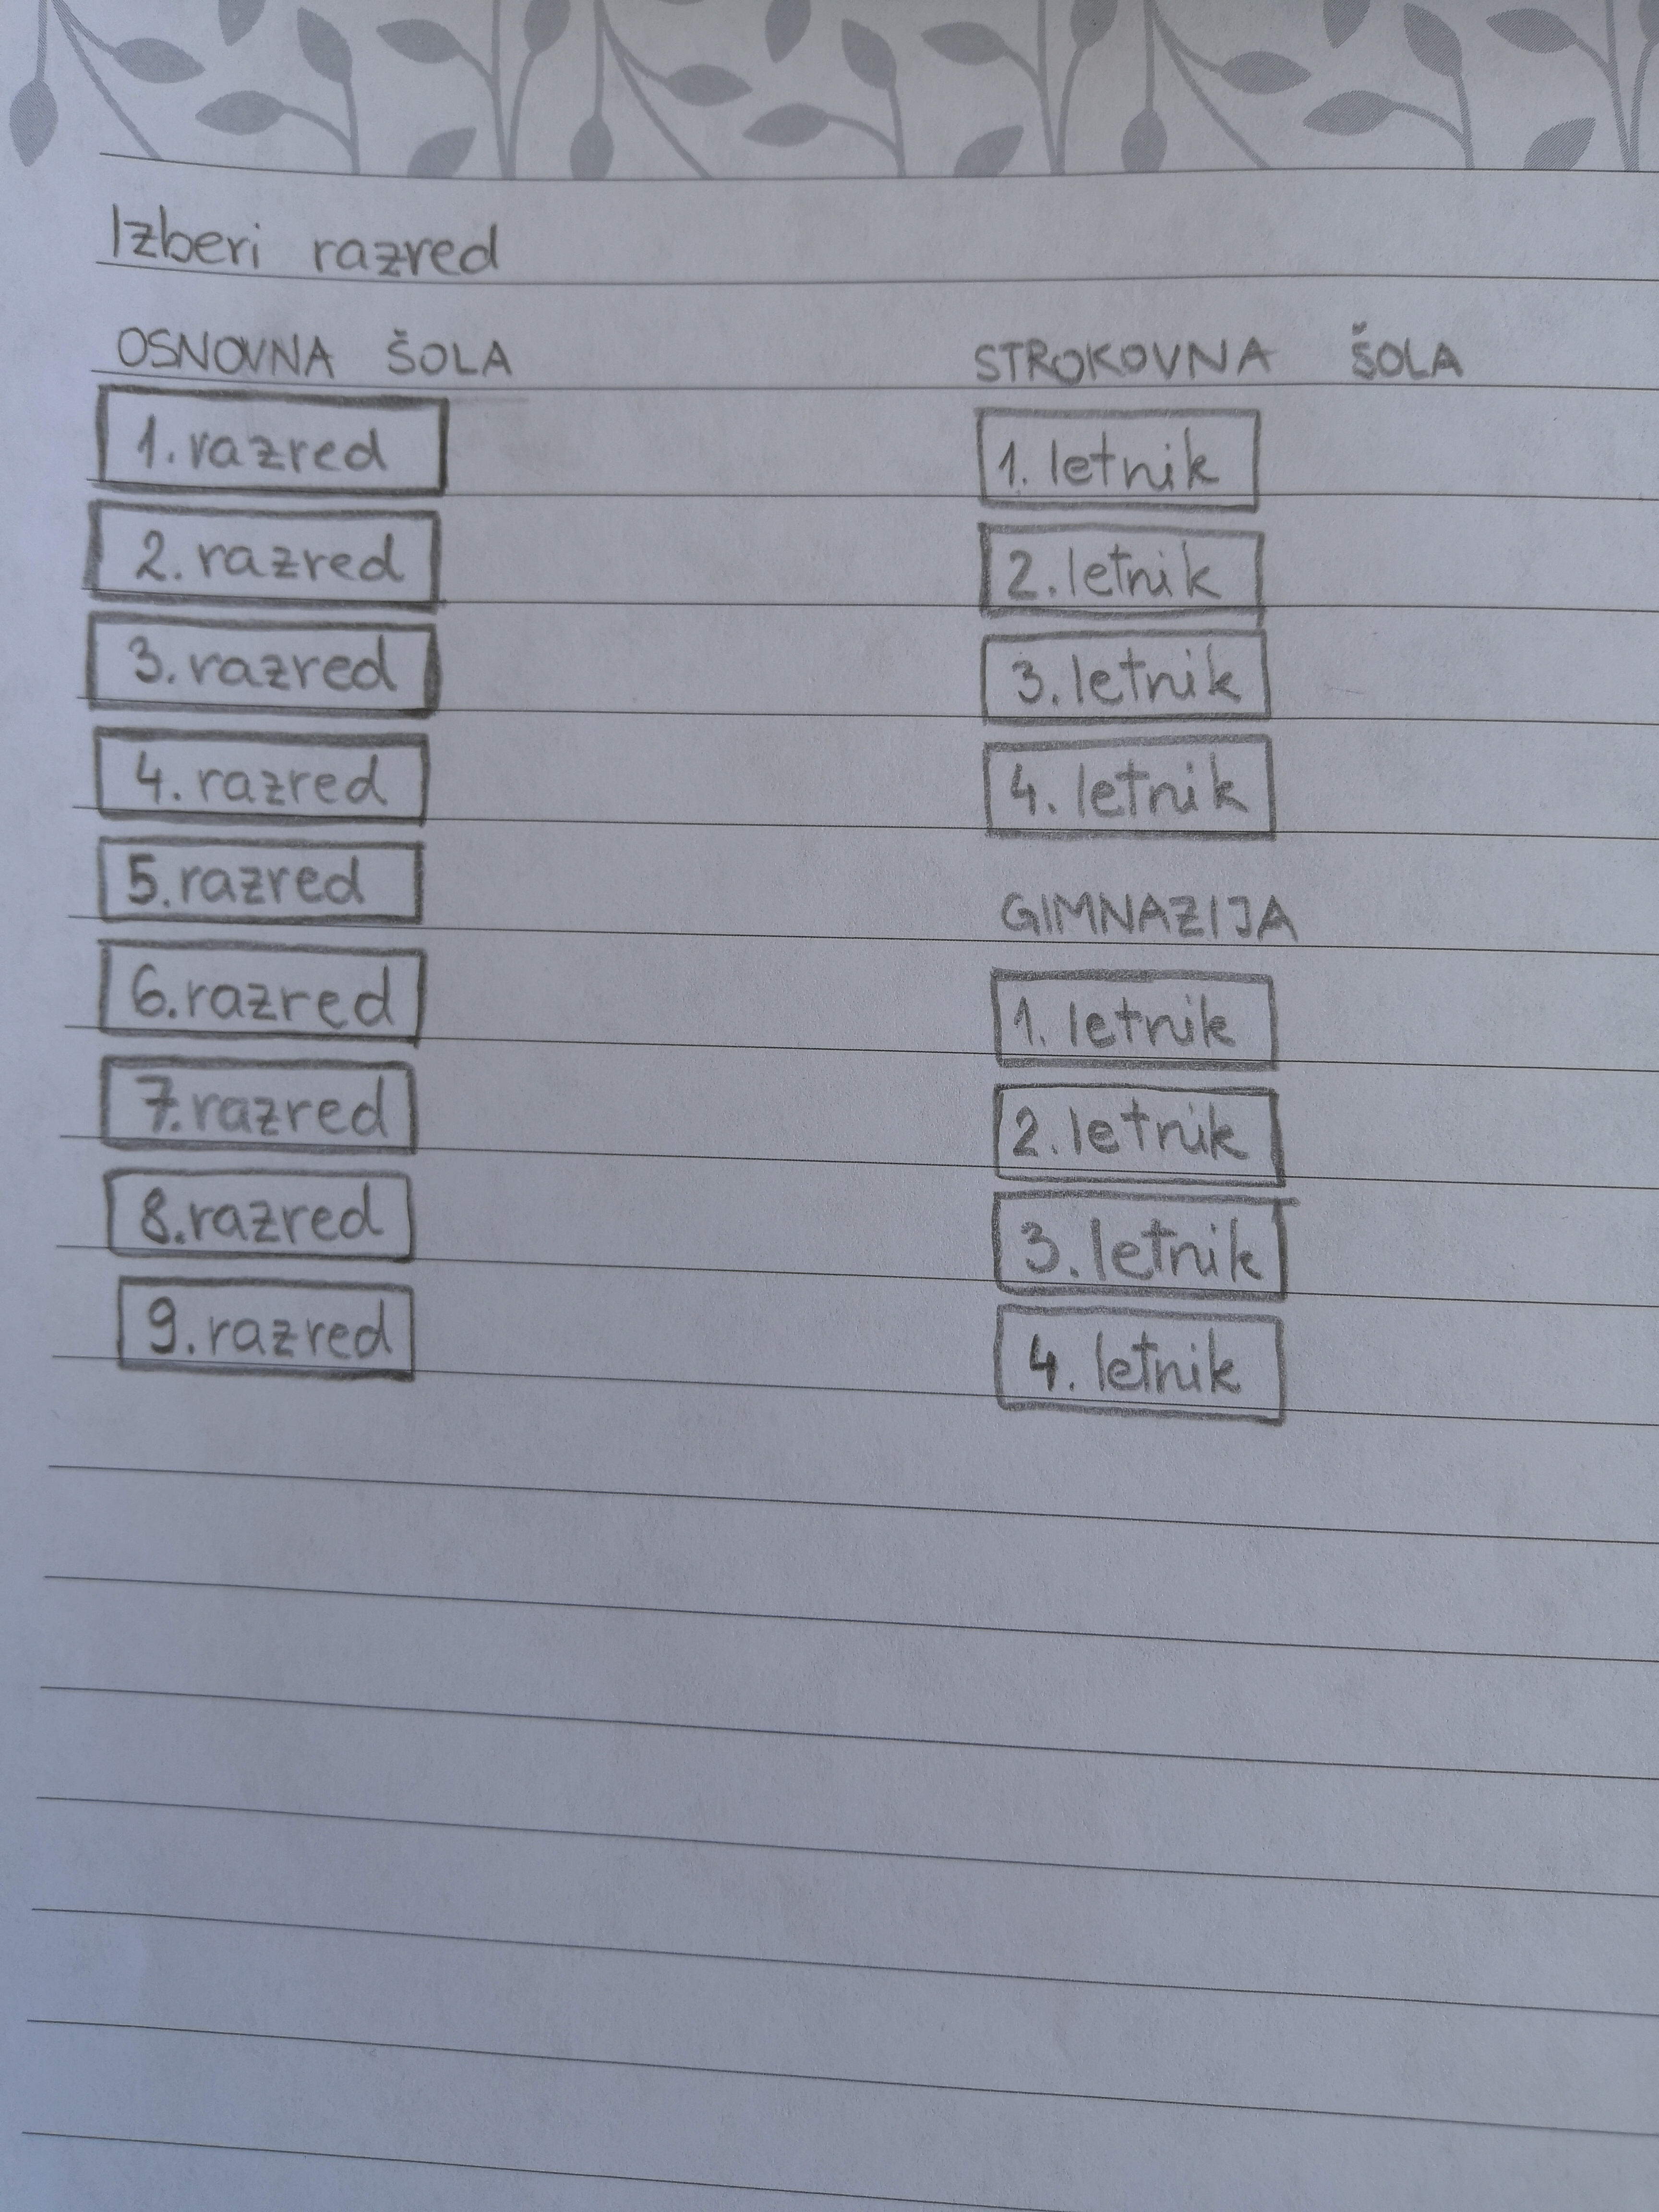 Izberi razred
OSNOVNA ŠOLA
1. razred
2. razred
3. razred
4. razred
5. razred
6. razred
7. razred
8. razred
9. razred
STROKOVNA ŠOLA
1. letnik
2. letnik
3. letnik
4. letnik
GIMNAZIJA
1. letnik
2. letnik
3. letnik
4. letnik